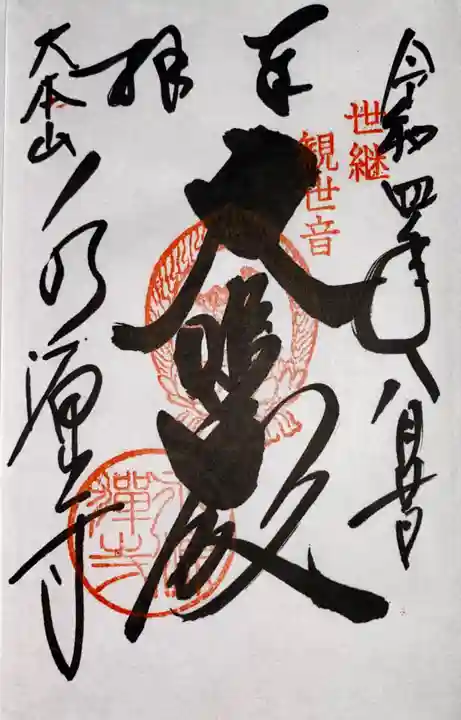 奉拝
令和四年八月廿日
世継
観世音
大悲殿
大本山永源寺